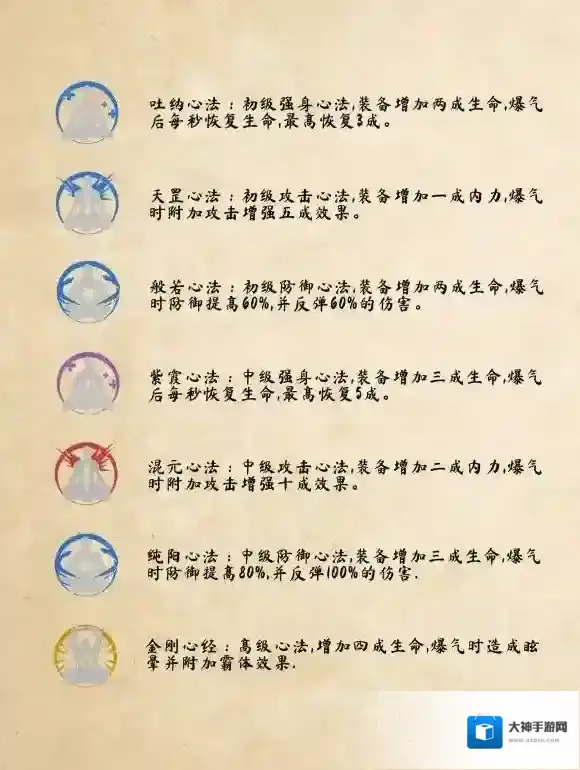 吐纳心法：初级强身心法,装备增加两成生命,爆气
后每秒恢复生命,最高恢复3成。
天罡心法：初级攻击心法,装备增加一成内力,爆气
时附加攻击增强五成效果。
般若心法：初级防御心法,装备增加两成生命,爆气
时防御提高60%,并反弹60%的伤害。
紫霞心法：中级强身心法,装备增加三成生命,爆气
后每秒恢复生命,最高恢复5成。
混元心法：中级攻击心法,装备增加二成内力,爆气
时附加攻击增强十成效果。
纯阳心法：中级防御心法,装备增加三成生命,爆气
时防御提高80%,并反弹100%的伤害.
金刚心经：高级心法,增加四成生命,爆气时造成眩
晕并附加霸体效果.
大神手游网